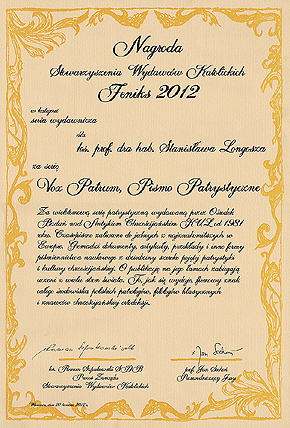 Nagroda
Stowarzyszenia Wydawców Katolickich
Feniks 2012
w kategorii
seria wydawnicza
dla
ks. prof. dra hab. Stanisława Longosza
za serię
Vox Patrum, Pismo Patrystyczne
Za wielotomową serię patrystyczną wydawaną przez Ośrodek
Badań nad Antykiem Chrześcijańskim KUL od 1981
roku. Czasopismo zaliczane do jednych z najznakomitszych w
Europie. Gromadzi dokumenty, artykuły, przekłady i inne formy
piśmiennictwa naukowego z dziedziny szeroko pojętej patrystyki
i kultury chrześcijańskiej. O publikację na jego łamach zabiegają
uczeni z wielu stron świata. To, jak się wydaje, firmowy znak
całego środowiska polskich patrologów, filologów klasycznych
i znawców chrześcijańskiej ortodoksji.
ks. Roman Szpakowski SDB
Prezes Zarządu
Stowarzyszenia Wydawców Katolickich
prof. Jan
Przewodniczący Jury
Warszawa, dnia 20 kwietnia 2012 r.